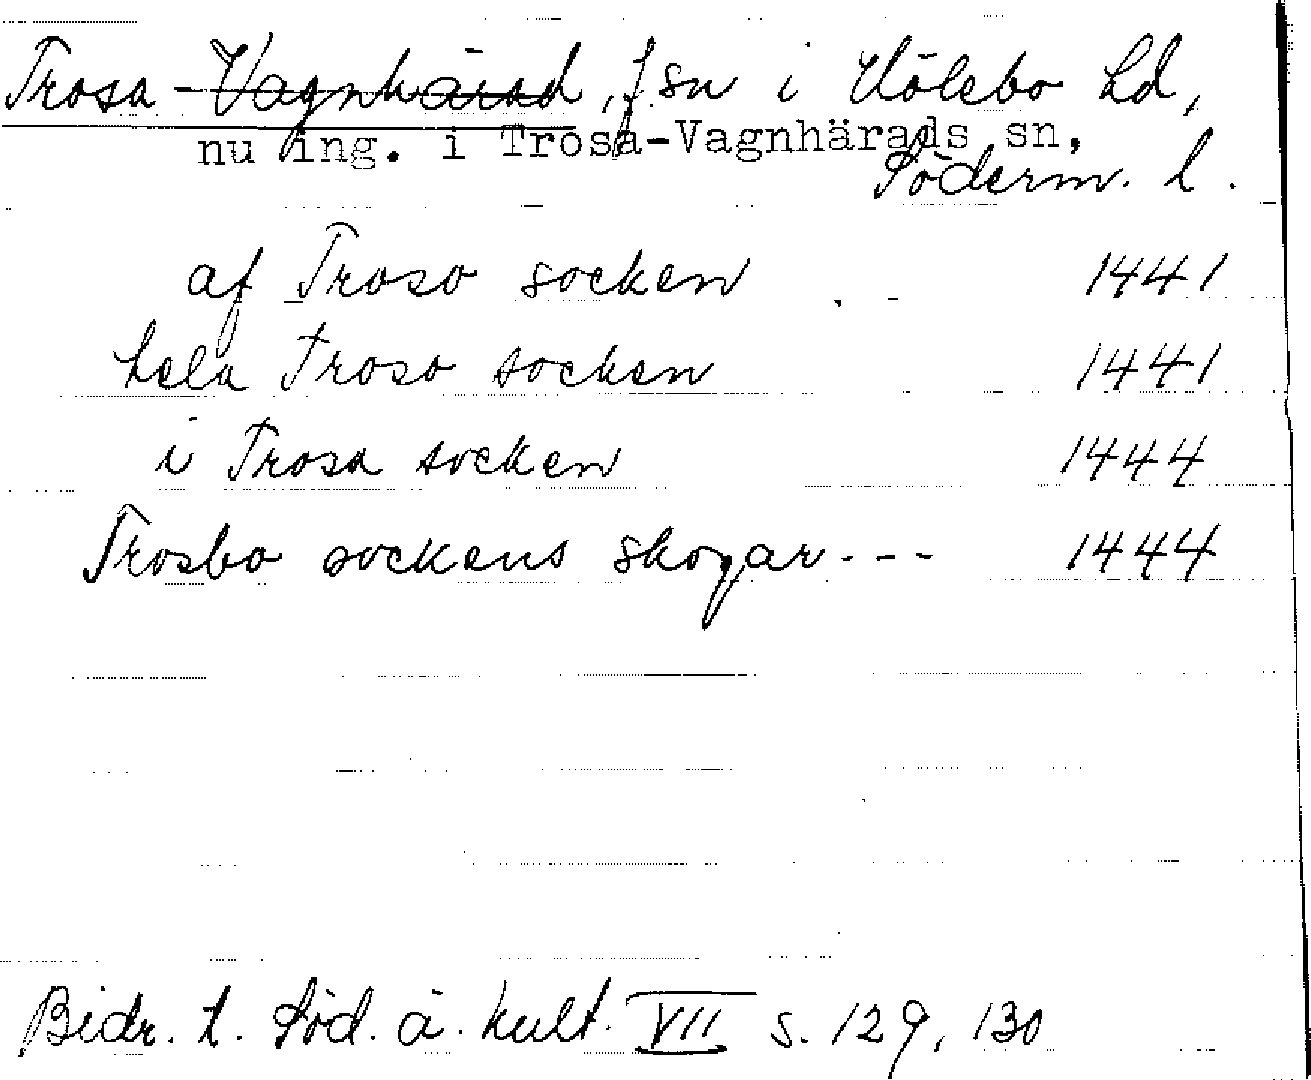 Trosa - Vagnhärad, f. sn i Hölebo hd,
nu ing. i Trosa-Vagnhärads sn,
Söderm. l.
af Troso socken 1441
hela Troso socken 1441
i Trosa socken 1444
Trosbo sockens skogar - - - 1444
Bidr. t. Söd. ä. kult. VII s. 129, 130